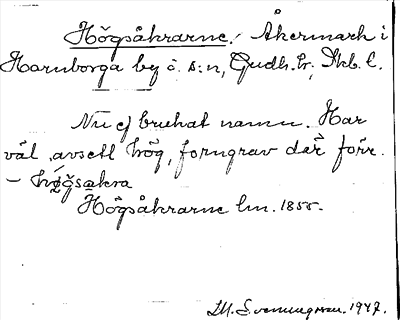 Högsåkrarne. Åkermark i
Hornborga by o. s:n, Gudh. hr, Skb. l.
Nu ej brukat namn. Har
väl avsett hög, forngrav där förr.
– högsakra
Högsåkrarne lm. 1855.
M. Svenungsson. 1947.